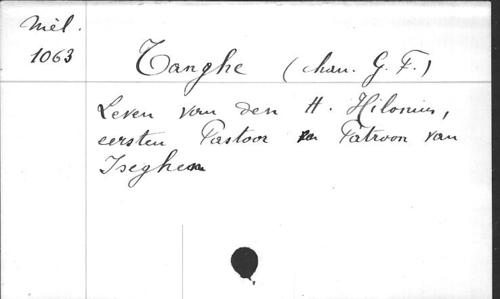 Mél.
1063
Tanghe (chan. G. F.)
Leven van den H. Hilonius,
eersten Pastoor en Patroon van
Iseghem